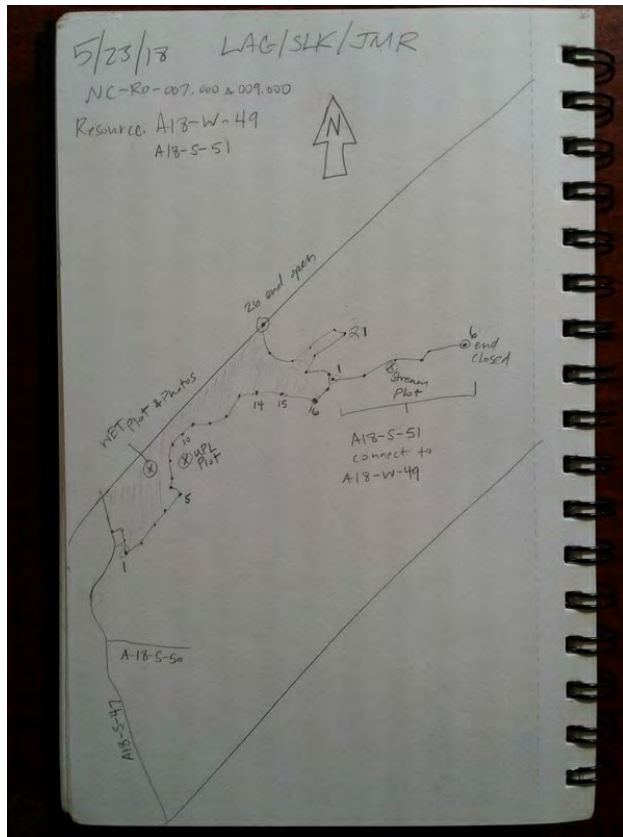 5/23/18 LAG/SLK/JMR
NC-RO-007.000 & 009.000
Resource. A18-W-49
A18-S-51
N
26 end open
21
6 end
closed
1
Stream
Plot
14 15 16
WET Plot & Photos
10
UPL
Plot
A18-S-51
connect to
A18-W-49
5
1
A-18-S-50
A18-S-47